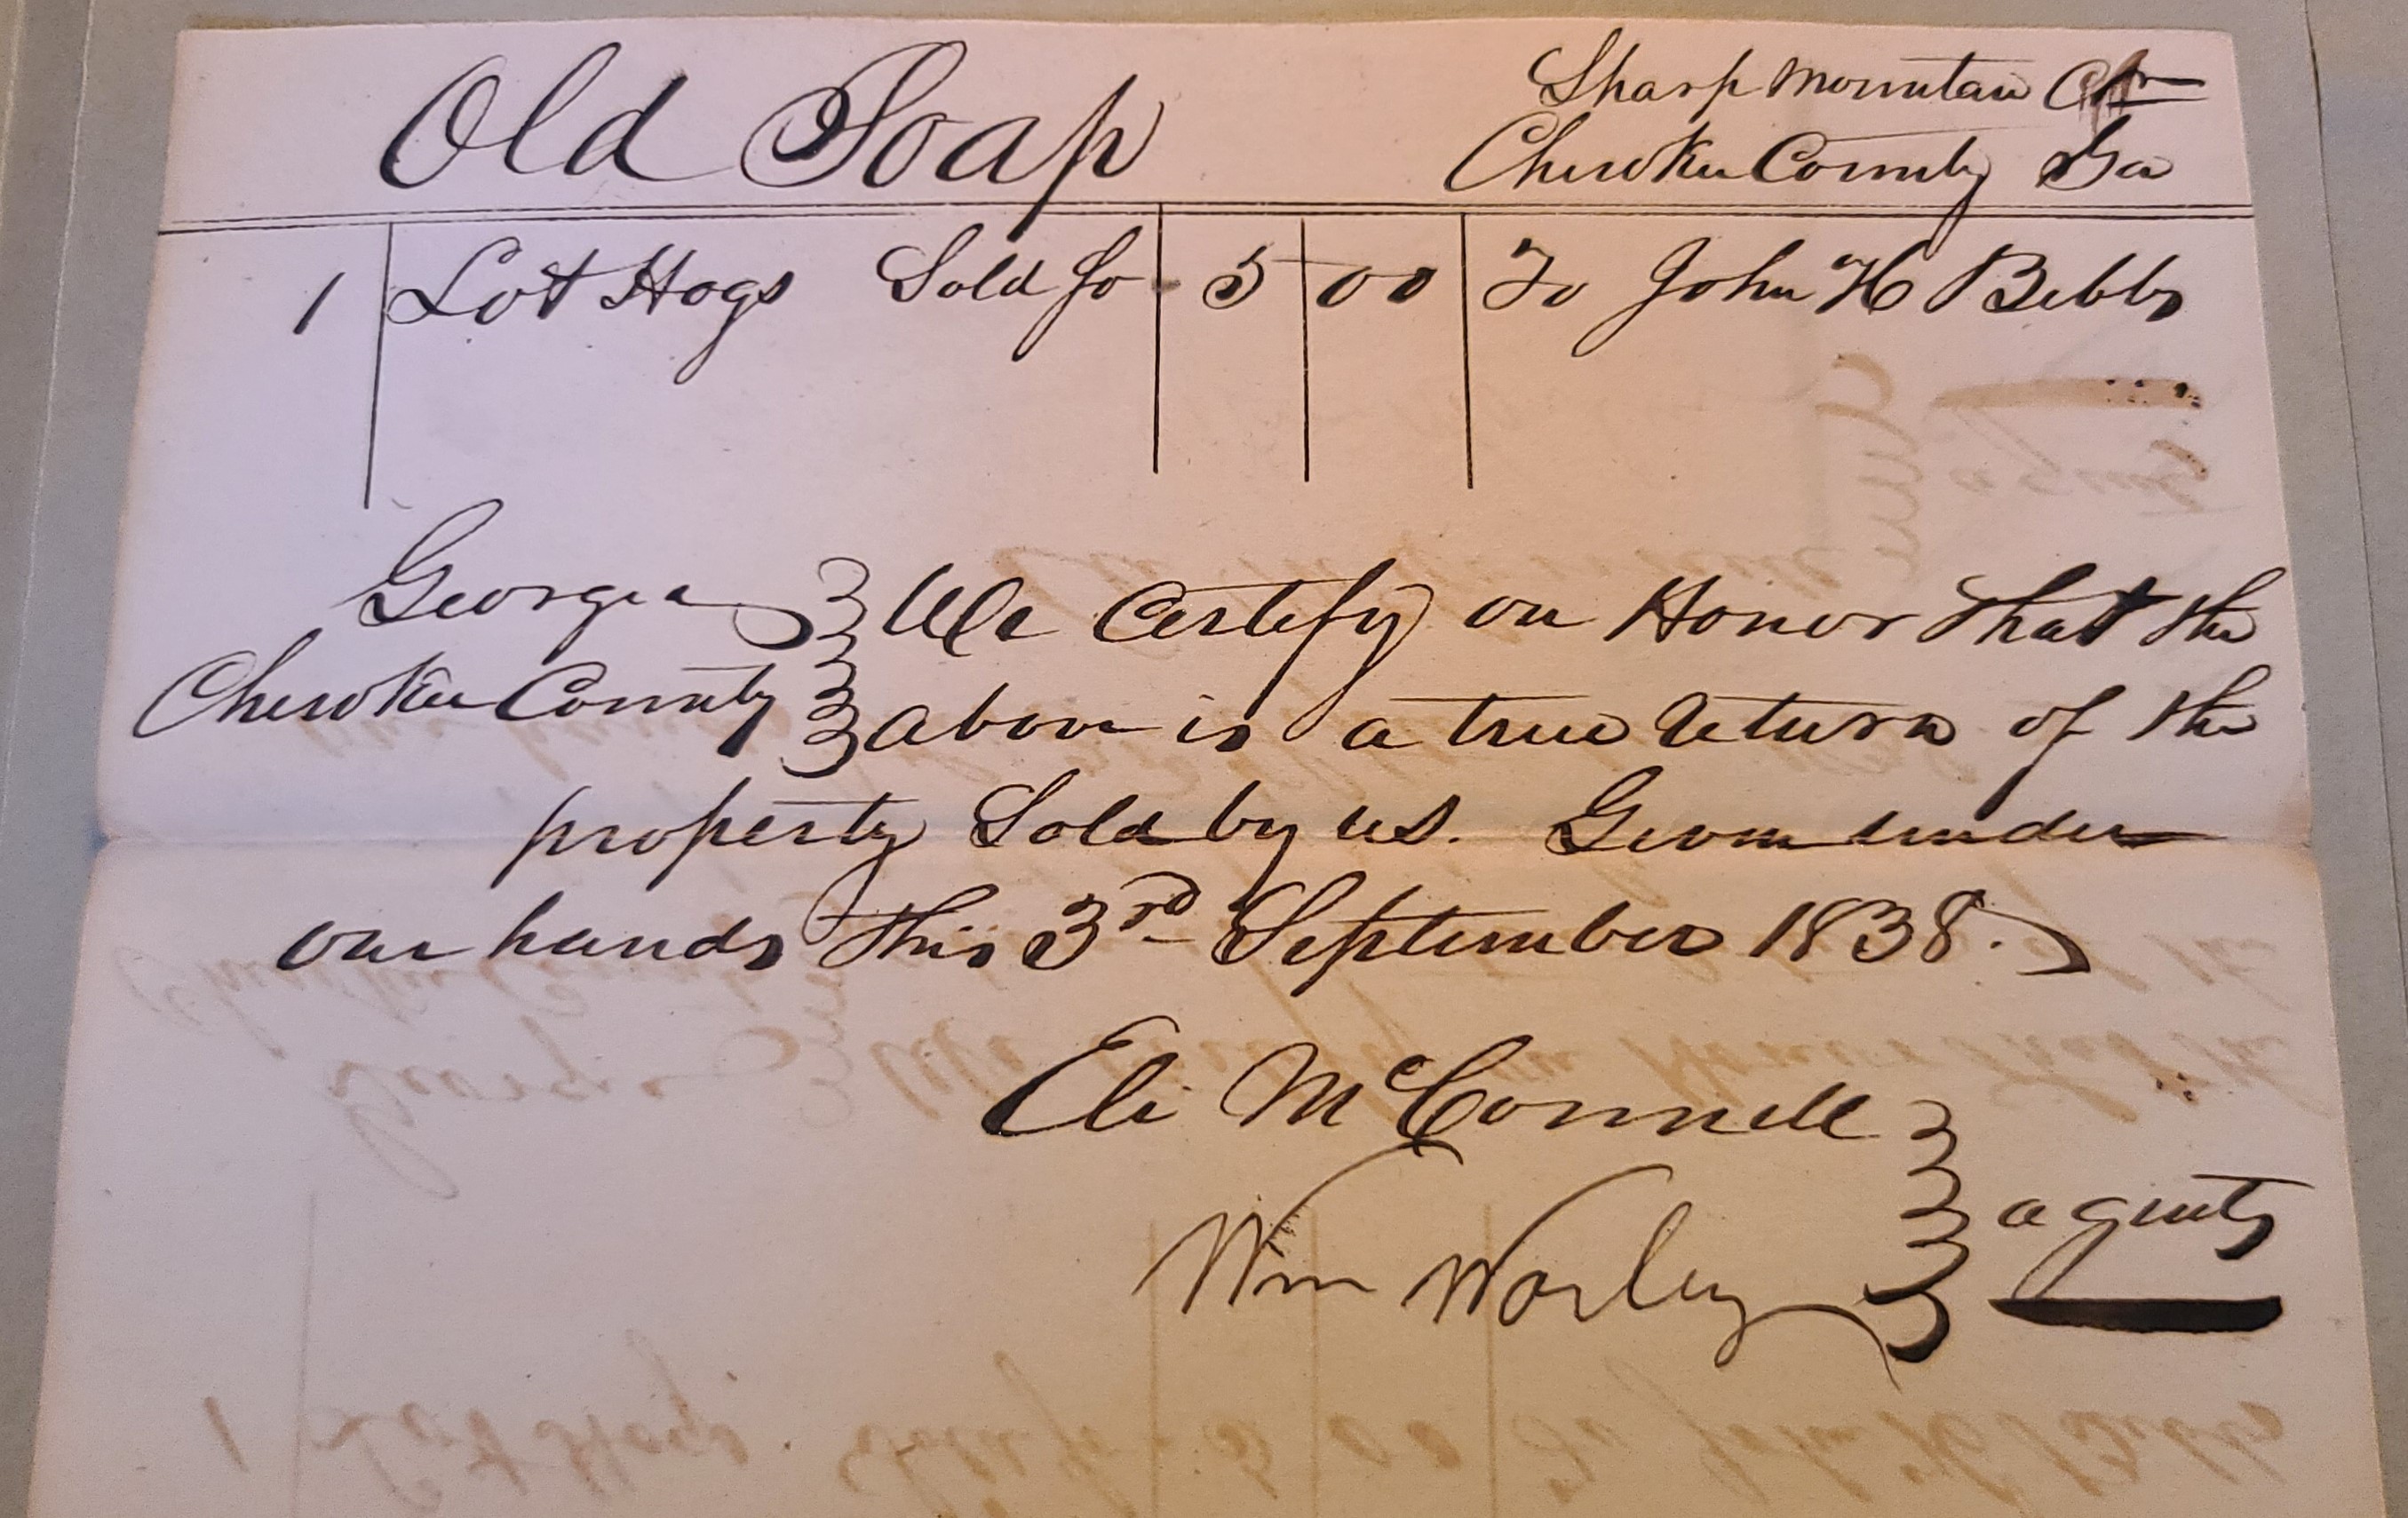 Old Soap
Sharp Mountain
Cherokee County Ga
1 Lot Hogs Sold fo - 5 00 To John H Bibbs
Georgia We Certify on Honor that the
Cherokee County above is a true Return of the
property Sold by us. Given under
our hands this 3rd September 1838.
Eli McConnell
Wm Worley agents